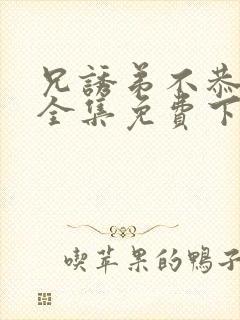 兄誘弟不恭
全集免費下
喫苹果的鴨子